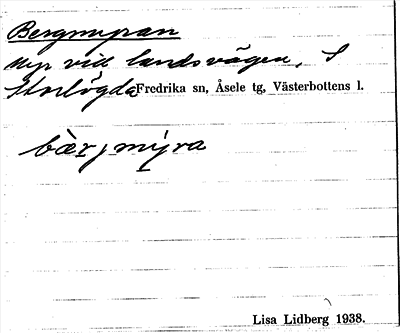 Bergmyran
myr vid landsvägen, S
Storlögda Fredrika sn, Åsele tg, Västerbottens l.
bæ̀rjmýra
Lisa Lidberg 1938.